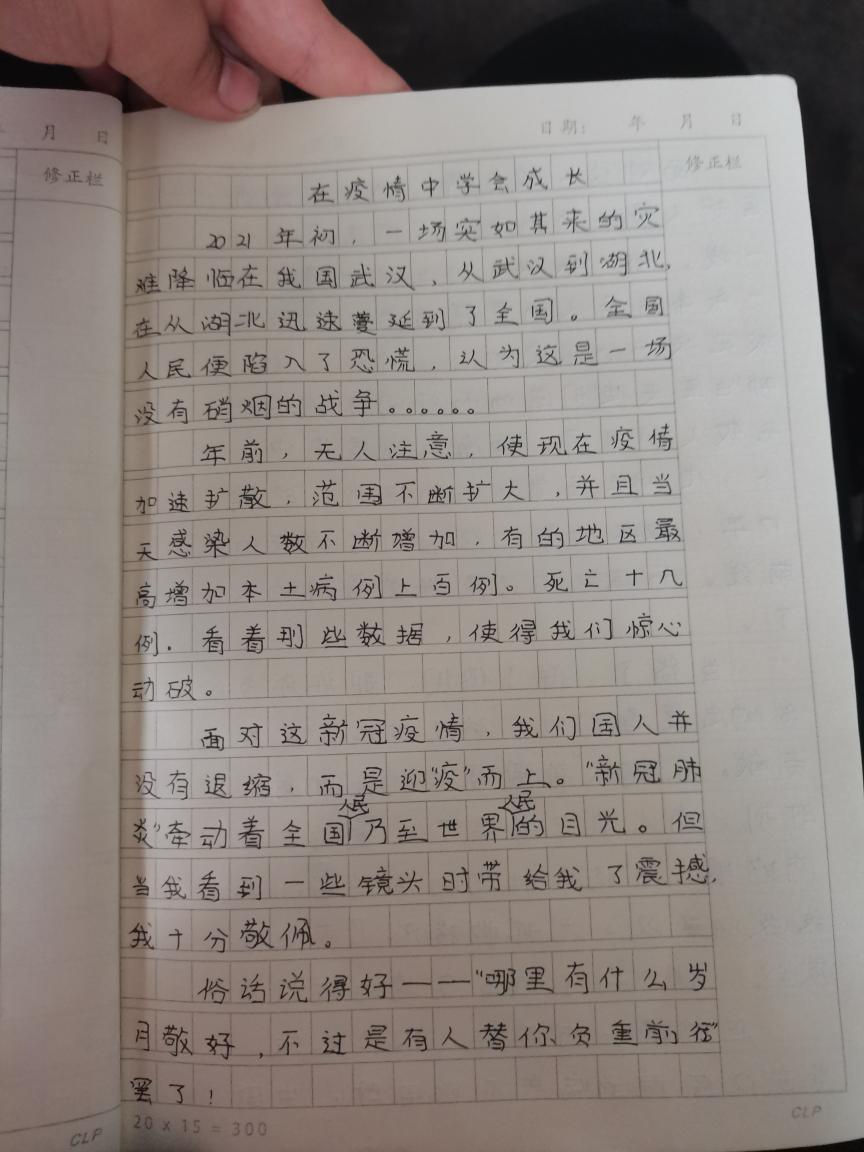 月 日
修正栏
日期: 年 月 日
修正栏
在疫情中学会成长
2021年初，一场突如其来的灾
难降临在我国武汉，从武汉到湖北，
在从湖北迅速蔓延到了全国。全国
人民便陷入了恐慌，认为这是一场
没有硝烟的战争。。。。。。
年前，无人注意，使现在疫情
加速扩散，范围不断扩大，并且当
天感染人数不断增加，有的地区最
高增加本土病例上百例。死亡十几
例．看着那些数据，使得我们惊心
动破。
面对这新冠疫情，我们国人并
没有退缩，而是迎“疫”而上。“新冠肺
炎”牵动着全国人民乃至世界人民的目光。但
当我看到一些镜头时带给我了震撼，
我十分敬佩。
俗话说得好——“哪里有什么岁
月敬好，不过是有人替你负重前行”
罢了！
CLP
20 x 15 = 300
CLP